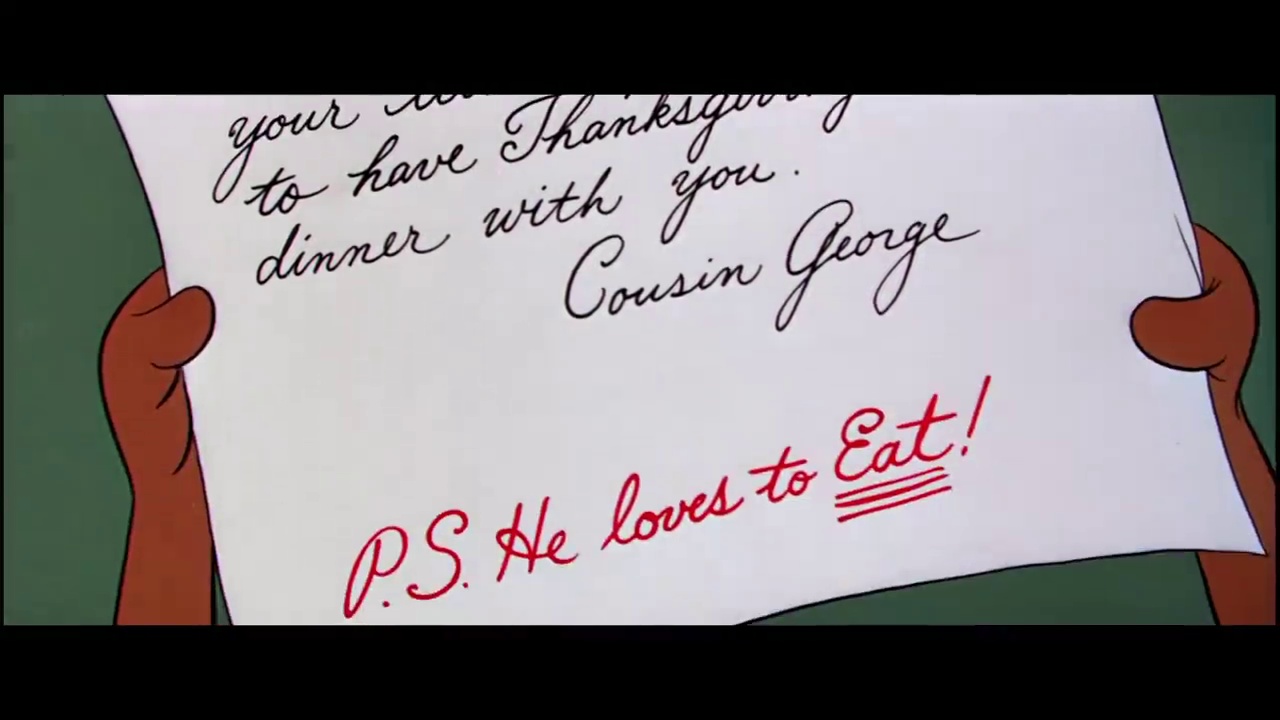 your
to have Thanksgiving
dinner with you.
Cousin George
P.S. He loves to Eat!